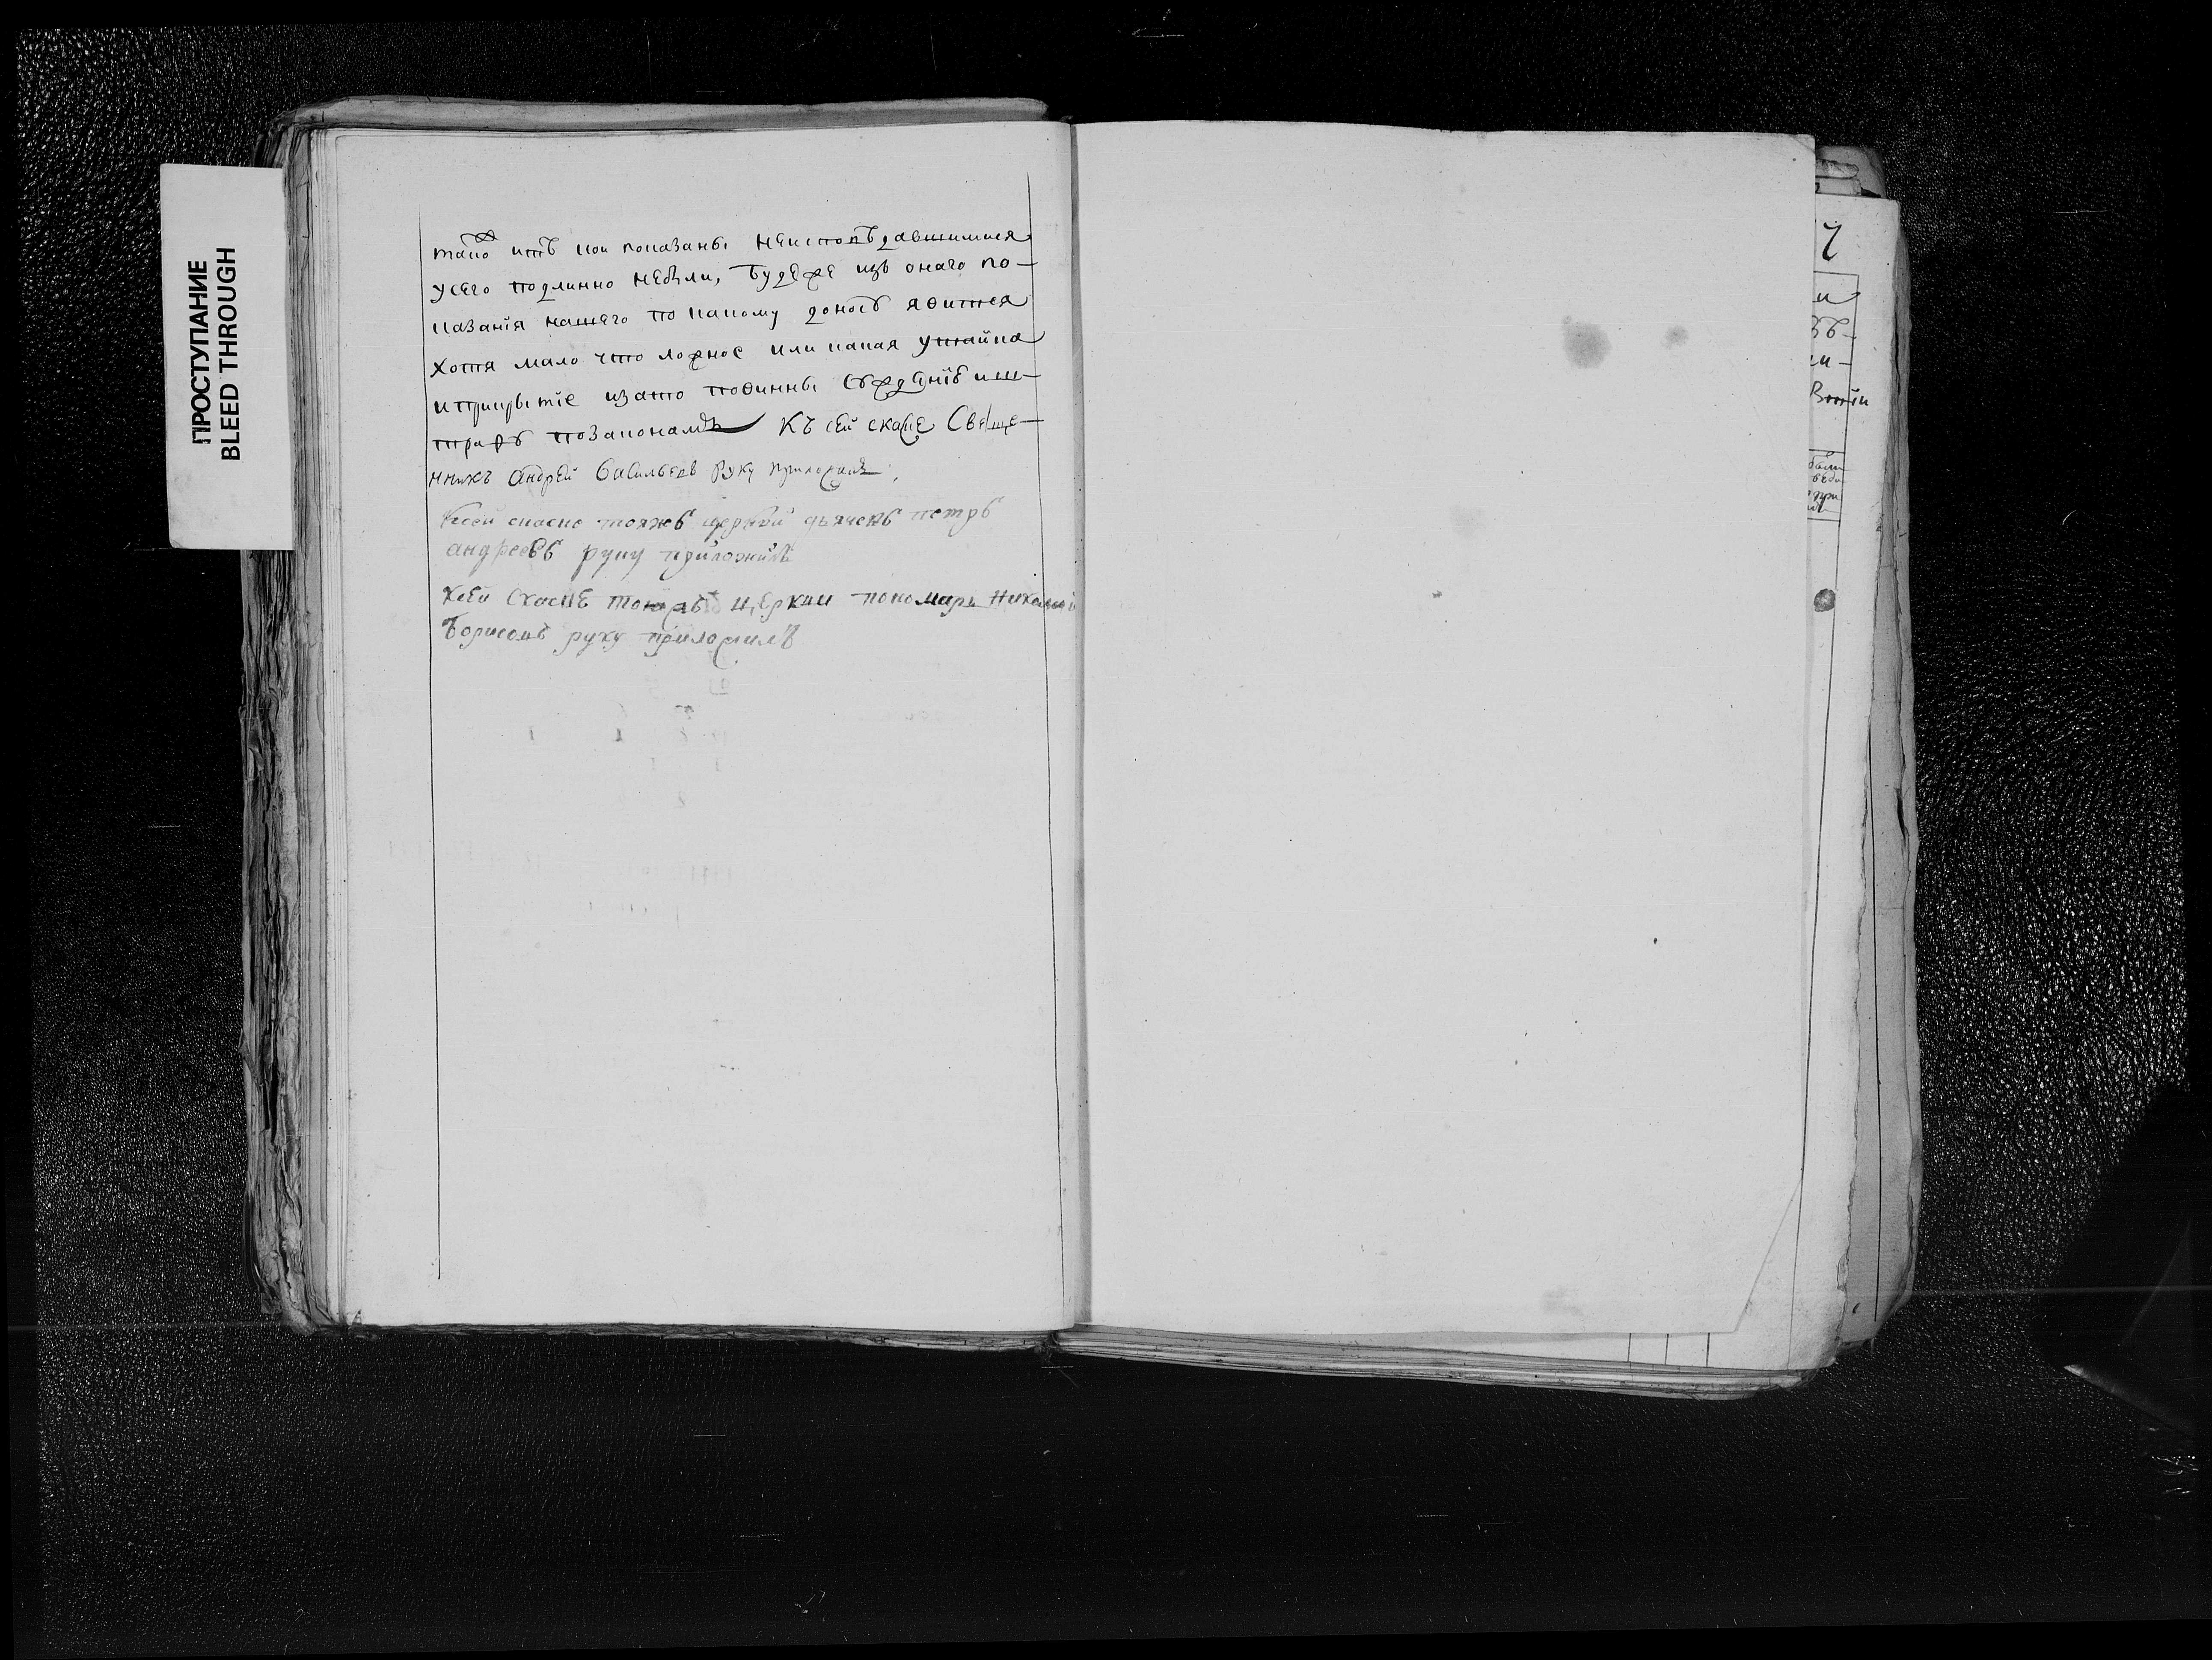 ПРОСТУПАНИЕ
BLEED THROUGH
такожъ итѣ кои показаны неисповѣдавшимися
у сего подлинно небыли, буде же изъ онаго по-
казанія нашего по какому доносъ явится
хотя мало что ложное или какая утайка
и прикрытіе и зато повинны
штрафъ по законамъ Къ сей скаске Свяще-
нникъ Андрей Васильевъ руку приложилъ
Ксей скаске тояжъ церкви дьячекъ петръ
андреевъ руку приложилъ
Ксей скаске тояжъ церкви пономарь Николай
Борисовъ руку приложилъ